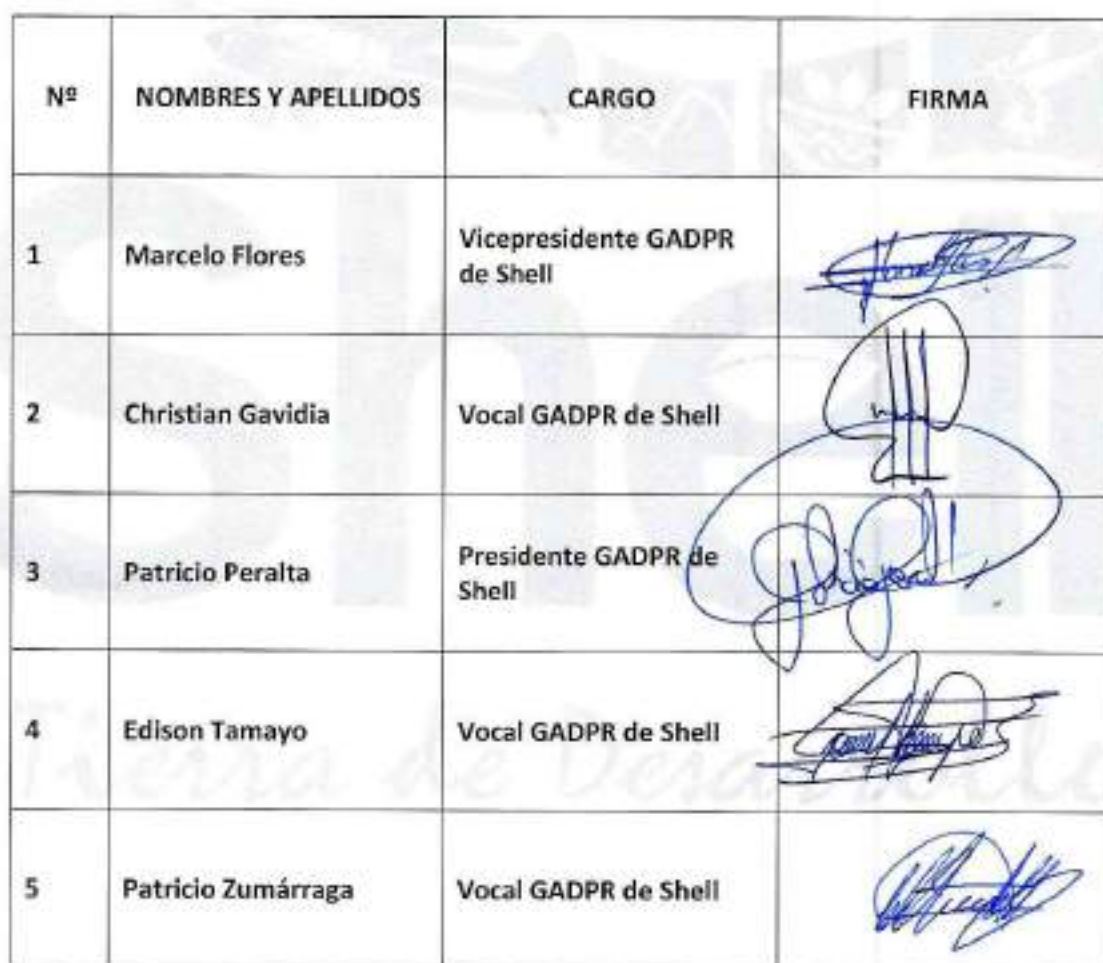 Nº NOMBRES Y APELLIDOS CARGO FIRMA
1 Marcelo Flores Vicepresidente GADPR
de Shell
2 Christian Gavidia Vocal GADPR de Shell
3 Patricio Peralta Presidente GADPR de
Shell
4 Edison Tamayo Vocal GADPR de Shell
5 Patricio Zumárraga Vocal GADPR de Shell
Shell
Tierra de Desarrollo